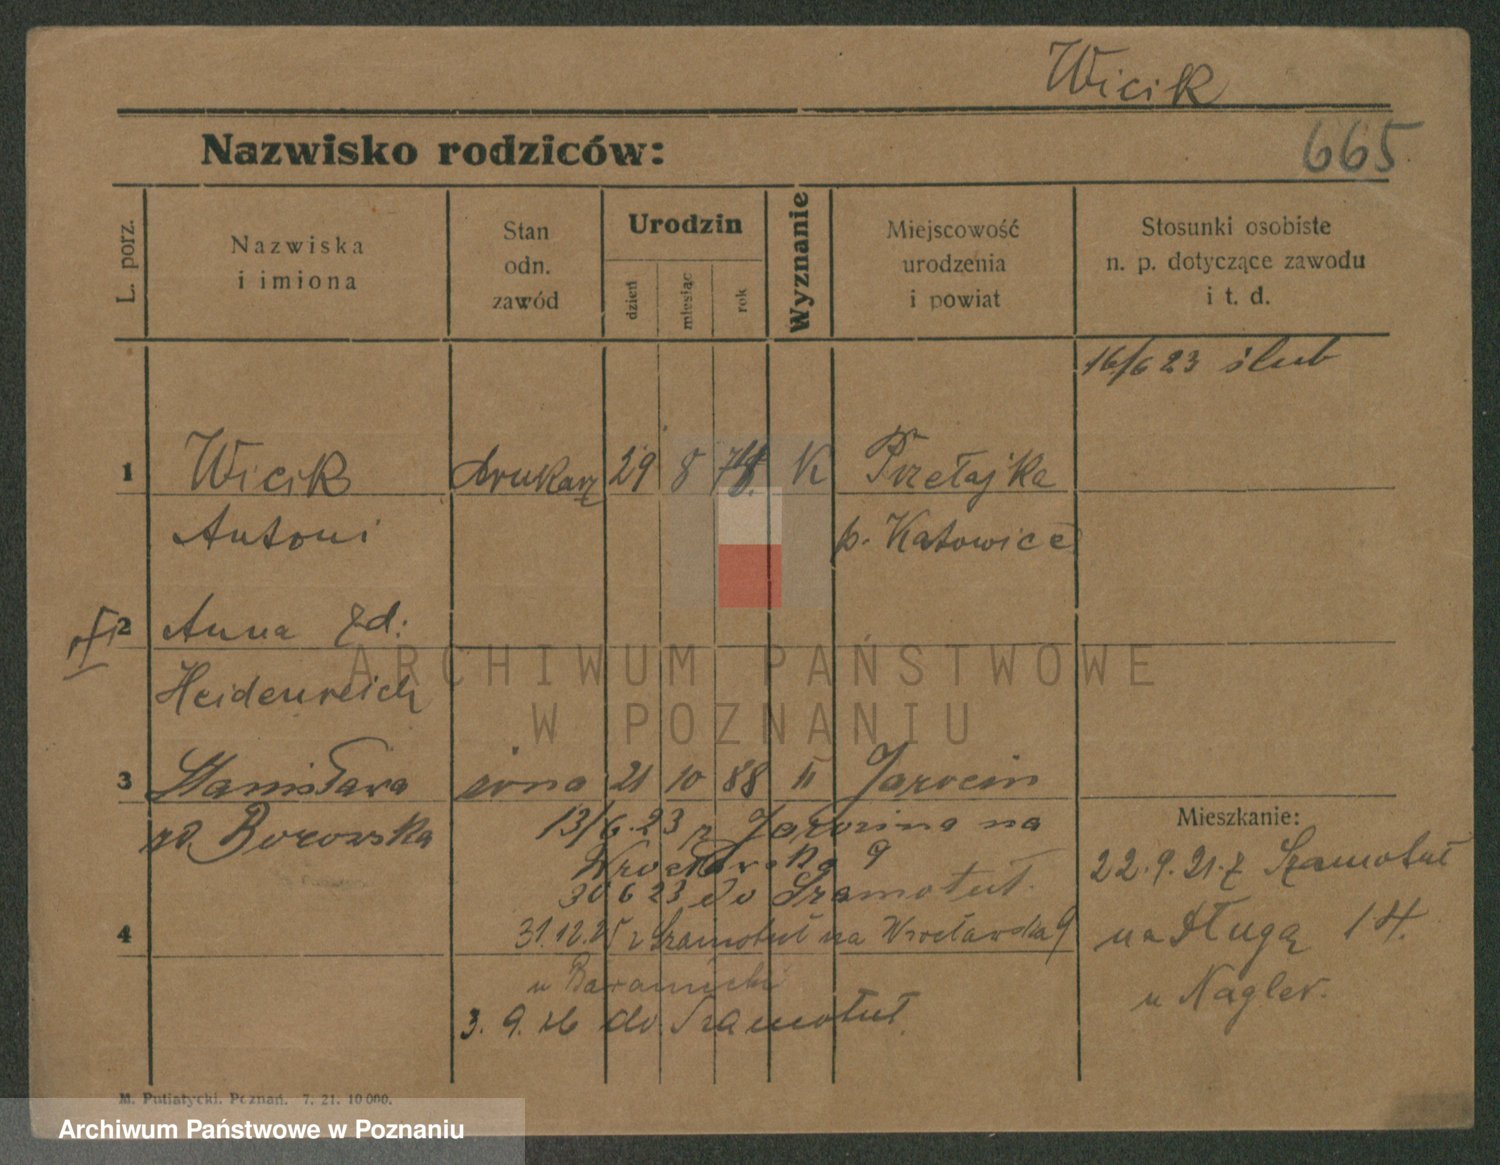 Wicik
Nazwisko rodziców:
665
L. porz.
Nazwiska
i imiona
Stan
odn.
zawód
Urodzin
dzień
miesiąc
rok
Wyznanie
Miejscowość
urodzenia
i powiat
Stosunki osobiste
n. p. dotyczące zawodu
i t. d.
16/6 23 ślub
1 Wicik drukarz 29 8 78. K Przełajka
Antoni p. Katowice
2 Anna zd:
Heidenreich
3 Stanisława żona 21 10 88 " Jarocin
zd. Borowska 13/6.23 z Jarocina na
Wrocławska 9
30 6 23 do Szamotuł.
4 31.12.25 z Szamotuł na Wrocławska 9
u
3. 9. 26 do Szamotuł.
Mieszkanie:
22.9.21. z Szamotuł
na Długą 14.
u Nagler.
ARCHIWUM PAŃSTWOWE
W POZNANIU
M. Putiatycki, Poznań. 7. 21. 10 000.
Archiwum Państwowe w Poznaniu